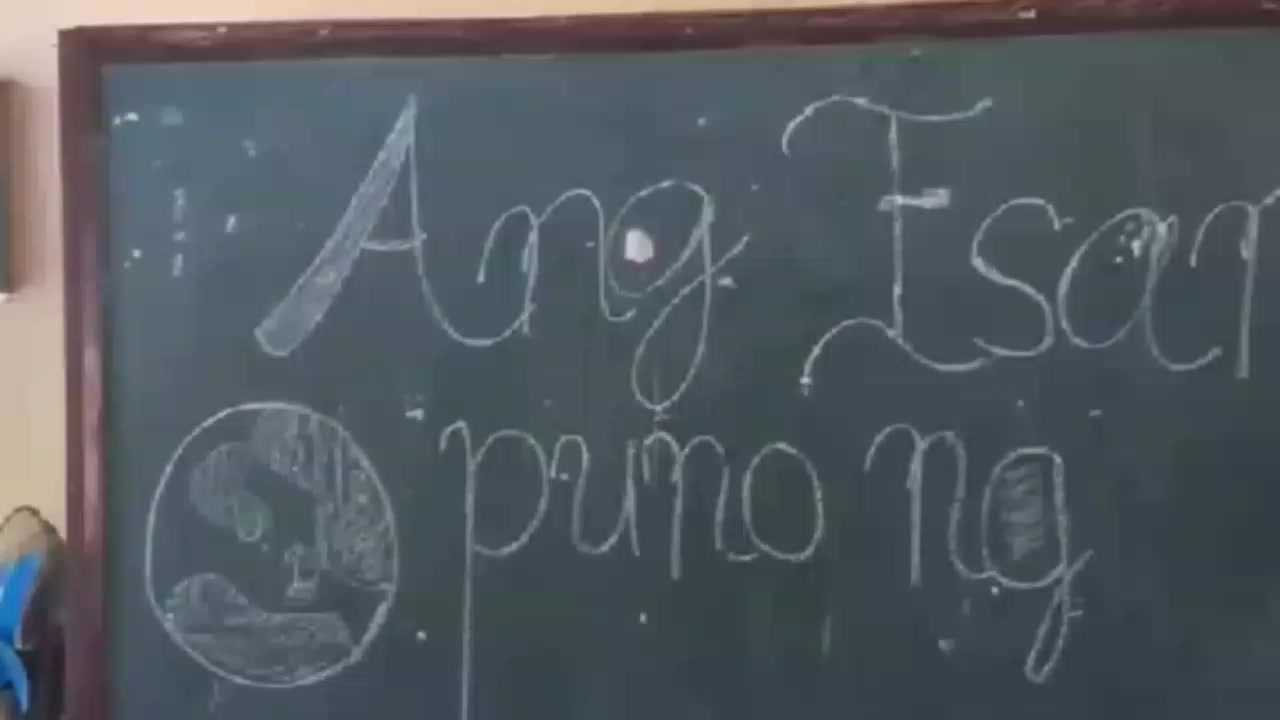 Ang Isan
puno ng